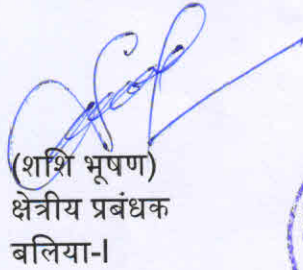 (शशि भूषण)
क्षेत्रीय प्रबंधक
बलिया-I